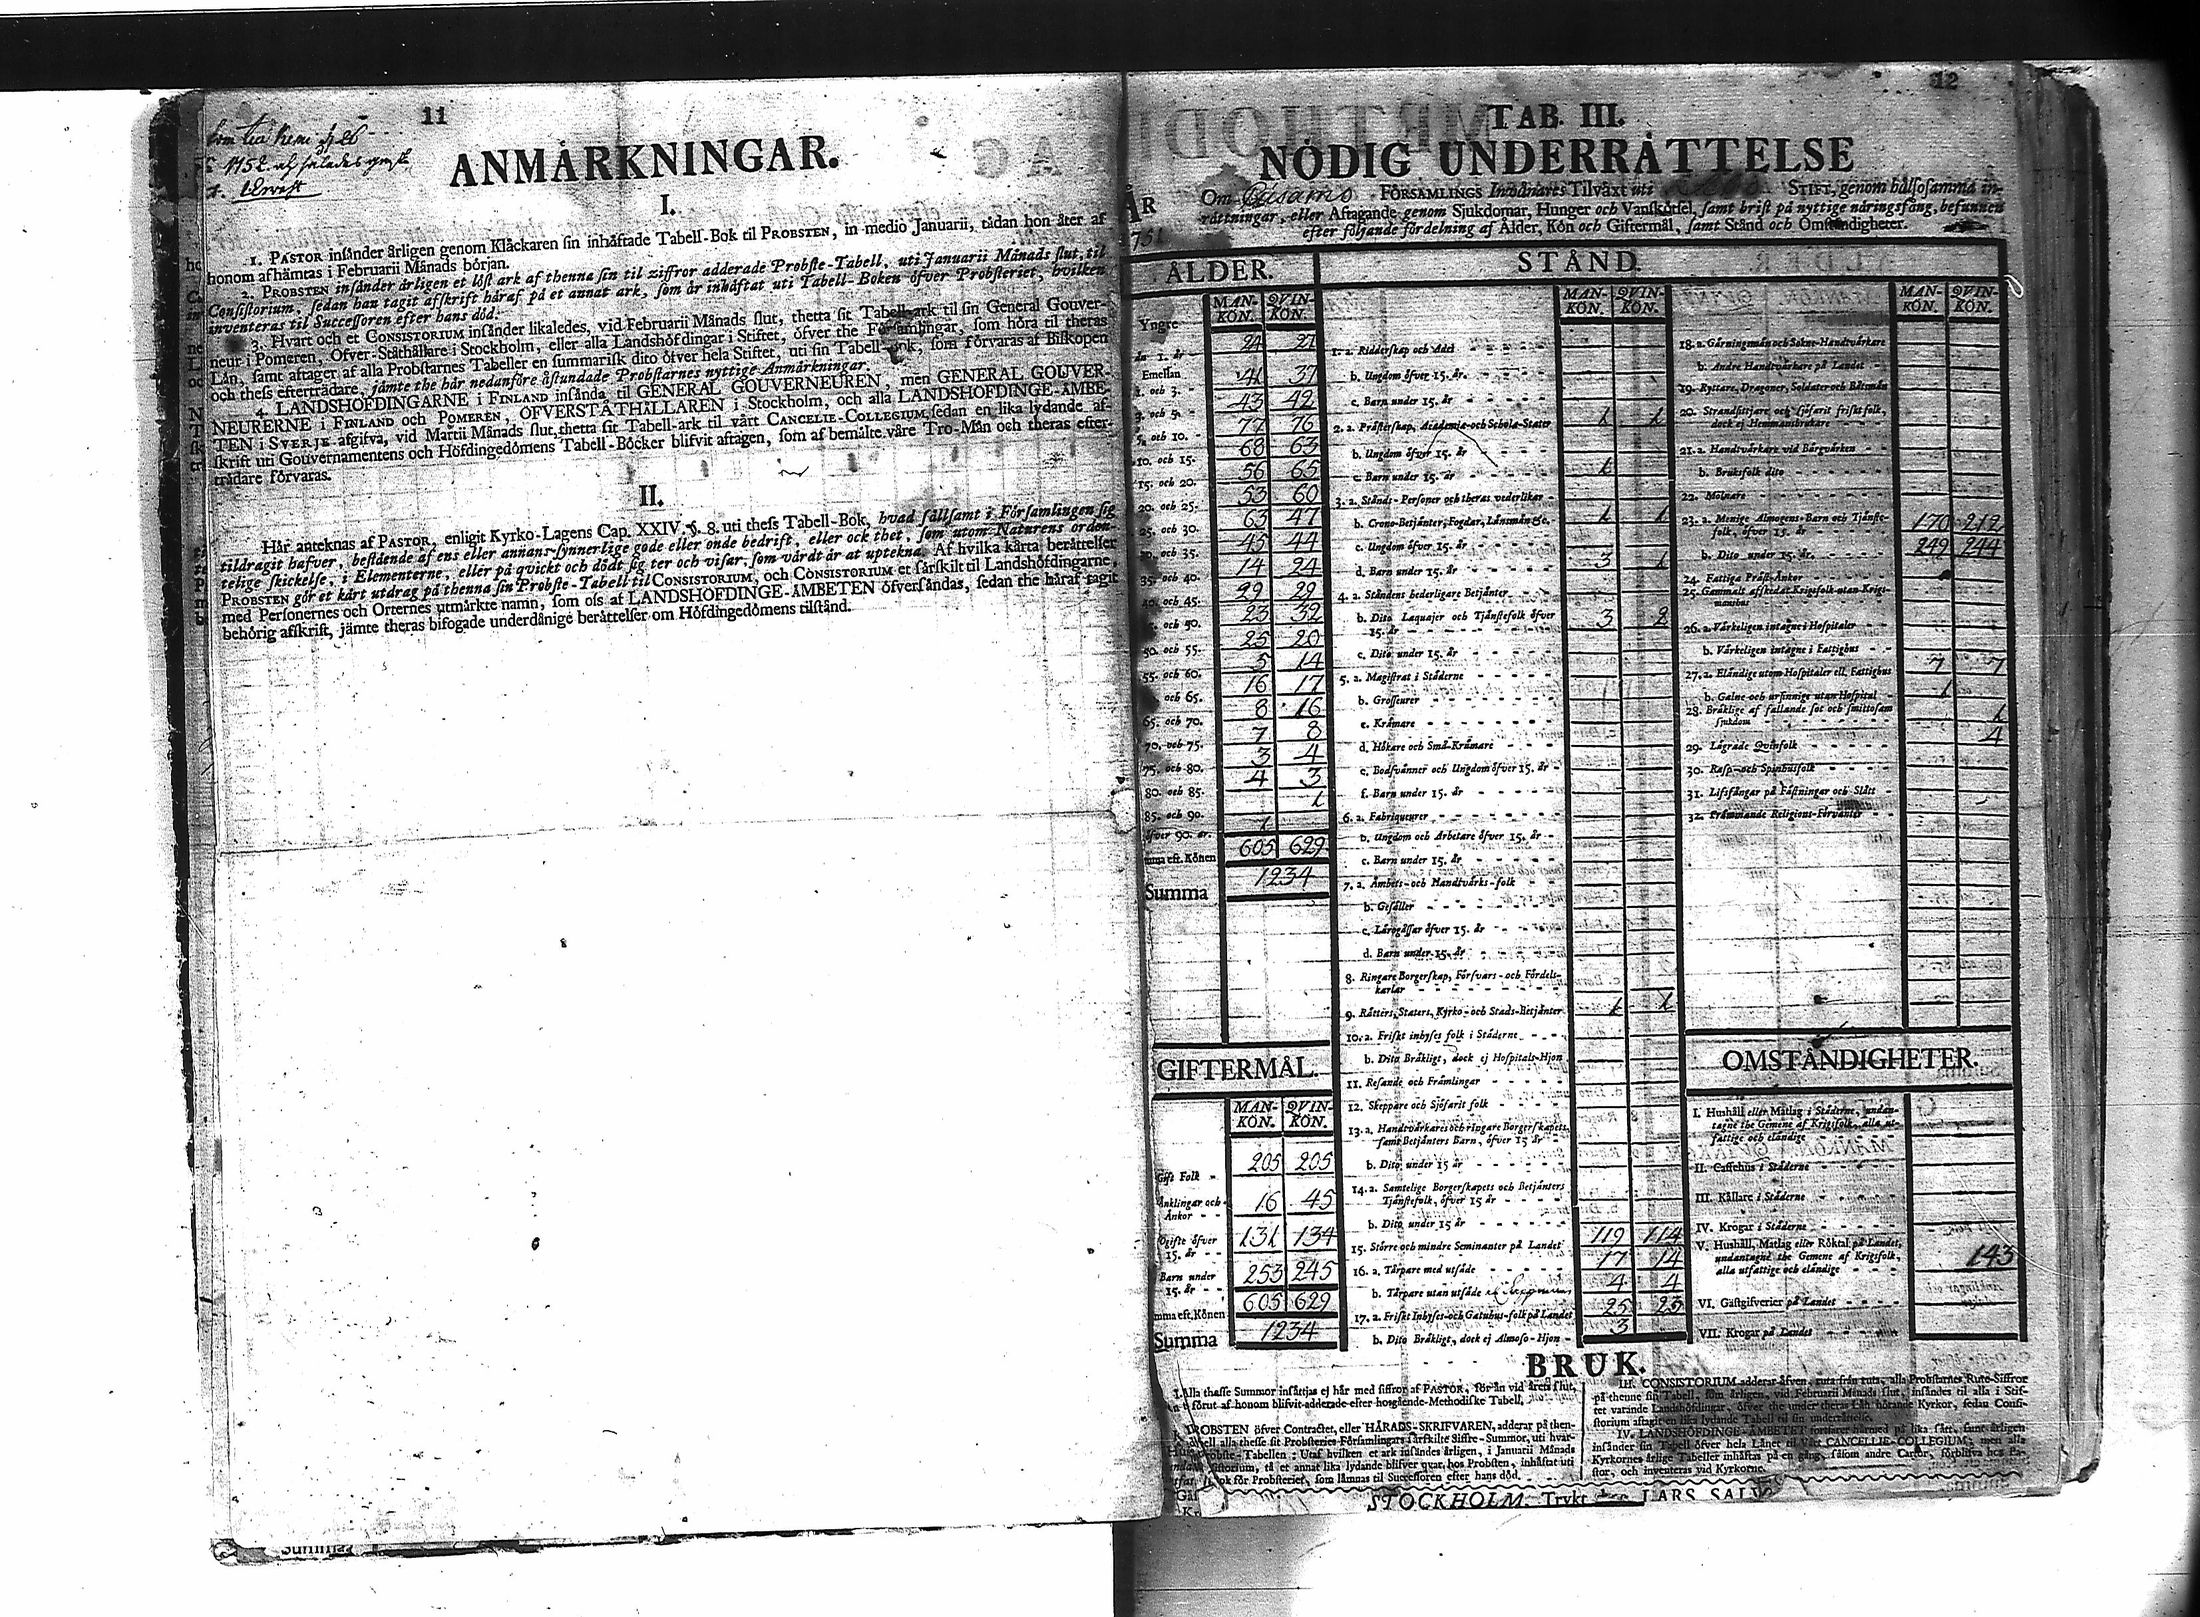 11
1752
ANMÄRKNINGAR.
I.
1. PASTOR insänder årligen genom Klåckaren sin inhäftade Tabell-Bok til PROBSTEN, in medio Januarii, tådan hon åter af
honom afhämtas i Februarii Månads början.
2. PROBSTEN insänder årligen et löst ark af thenna sin til ziffror adderade Probste-Tabell, uti Januarii Månads slut, til
Consistorium, sedan han tagit afskrift häraf på et annat ark, som är inhäftat uti Tabell-Boken öfver Probsteriet, hvilken
inventeras til Successoren efter hans död.
3. Hvart och et CONSISTORIUM insänder likaledes, vid Februarii Månads slut, thetta sit Tabell-ark til sin General Gouver-
neur i Pomeren, Öfver-Ståthållare i Stockholm, eller alla Landshöfdingar i Stiftet, öfver the Församlingar, som höra til theras
Län, samt aftager af alla Probstarnes Tabeller en summarisk dito öfver hela Stiftet, uti sin Tabell-Bok, som förvaras af Biskopen
och thess efterträdare, jämte the här nedanföre åstundade Probstarnes nyttige Anmärkningar.
4. LANDSHÖFDINGARNE i FINLAND insända til GENERAL GOUVERNEUREN, men GENERAL GOUVER-
NEURERNE i FINLAND och POMEREN, ÖFVERSTÅTHÅLLAREN i Stockholm, och alla LANDSHÖFDINGE-ÄMBE-
TEN i SVERJE afgifva, vid Martii Månads slut, thetta sit Tabell-ark til vårt CANCELIE-COLLEGIUM, sedan en lika lydande af-
skrift uti Gouvernamentens och Höfdingedömens Tabell-Böcker blifvit aftagen, som af bemälte våre Tro-Män och theras efter-
trädare förvaras.
II.
Här anteknas af PASTOR, enligit Kyrko-Lagens Cap. XXIV. §. 8. uti thess Tabell-Bok, hvad sällsamt i Församlingen sig
tildragit hafver, bestående af ens eller annans synnerlige gode eller onde bedrift, eller ock thet, som utom Naturens orden-
telige skickelse, i Elementerne, eller på qvickt och dödt sig ter och visar, som värdt är at uptekna. Af hvilka kårta berättelser
PROBSTEN gör et kårt utdrag på thenna sin Probste-Tabell til CONSISTORIUM, och CONSISTORIUM et särskilt til Landshöfdingarne,
med Personernes och Orternes utmärkte namn, som oss af LANDSHÖFDINGE-ÄMBETEN öfversändas, sedan the häraf tagit
behörig afskrift, jämte theras bifogade underdånige berättelser om Höfdingedömens tilstånd.
12
TAB. III.
NÖDIG UNDERRÄTTELSE
ÅR Om Cusamo FÖRSAMLINGS Inbönares Tilväxt uti STIFT, genom hälsosamma in-
751 rättningar, eller Aftagande genom Sjukdomar, Hunger och Vanskötsel, samt brist på nyttige näringsfång, befunnen
efter följande fördelning af Ålder, Kön och Giftermål, samt Stånd och Omständigheter.
ÅLDER.
MAN-KÖN. QVIN-KÖN.
Yngre
än 1. år 24 21
Emellan
1. och 3. 41 37
3. och 5. 43 42
5. och 10. 77 76
10. och 15. 68 63
15. och 20. 56 65
20. och 25. 53 60
25. och 30. 63 47
30. och 35. 45 44
35. och 40. 14 24
40. och 45. 29 29
och 50. 23 32
50. och 55. 25 20
55. och 60. 5 14
och 65. 16 17
65. och 70. 8 16
70. och 75. 7 8
75. och 80. 3 4
80. och 85. 4 3
85. och 90. 1
öfver 90. år. 1
mma eft. Könen 605 629
Summa 1234
GIFTERMÅL.
MAN-KÖN. QVIN-KÖN.
Gift Folk 205 205
Änklingar och
Änkor 16 45
Ogifte öfver
15. år 131 134
Barn under
15. år 253 245
mma eft. Könen 605 629
Summa 1234
STÅND.
MAN-KÖN. QVIN-KÖN.
1. a. Ridderskap och Adel
b. Ungdom öfver 15. år.
c. Barn under 15. år
2. a. Prästerskap, Academiæ och Schola-Stater 1 1
b. Ungdom öfver 15. år
c. Barn under 15. år 1
3. a. Stånds-Personer och theras vederlikar
b. Crono-Betjänter, Fogdar, Länsmän &c. 1 1
c. Ungdom öfver 15. år
d. Barn under 15. år 3 1
4. a. Ståndens hederligare Betjänter
b. Dito Laquajer och Tjänstefolk öfver
15. år 3 2
c. Dito under 15. år
5. a. Magistrat i Städerne
b. Grosseurer
c. Krämare
d. Hökare och Små-Krämare
e. Bodsvänner och Ungdom öfver 15. år
f. Barn under 15. år
6. a. Fabriqueurer
b. Ungdom och Arbetare öfver 15. år
c. Barn under 15. år
7. a. Ämbets- och Handtvärks-folk
b. Gesäller
c. Lärogåssar öfver 15. år
d. Barn under 15. år
8. Ringare Borgerskap, Försvars- och Fördels-
karlar
9. Rätters, Staters, Kyrko- och Stads-Betjänter 1 1
10. a. Friskt inhyses folk i Städerne
b. Dito Bräkligt, dock ej Hospitals-Hjon
11. Resande och Främlingar
12. Skeppare och Sjöfarit folk
13. a. Handtvärkares och ringare Borgerskapets,
samt Betjänters Barn, öfver 15 år
b. Dito under 15 år
14. a. Samtelige Borgerskapets och Betjänters
Tjänstefolk, öfver 15 år
b. Dito under 15 år
15. Större och mindre Seminanter på Landet 119 114
16. a. Tårpare med utsäde 17 14
b. Tårpare utan utsäde 4 4
17. a. Friskt Inhyses- och Gatuhus-folk på Landet 25 23
b. Dito Bräkligt, dock ej Almoso-Hjon 3
MAN-KÖN. QVIN-KÖN.
18. a. Gärningsmän och Sokne-Handtvärkare
b. Andre Handtvärkare på Landet
19. Ryttare, Dragoner, Soldater och Båtsmän
20. Strandsittjare och sjöfarit friskt folk,
dock ej Hemmansbrukare
21. a. Handtvärkare vid Bärgvärken
b. Bruksfolk dito
22. Mölnare
23. a. Menige Almogens Barn och Tjänste-
folk, öfver 15. år 170 212
b. Dito under 15. år. 249 244
24. Fattiga Präst-Änkor
25. Gammalt afskedat Krigsfolk utan Krigs-
manshus
26. a. Värkeligen intagne i Hospitaler
b. Värkeligen intagne i Fattighus
27. a. Eländige utom Hospitaler ell. Fattighus 7 7
b. Galne och ursinnige utan Hospital 1
28. Bräklige af fallande sot och smittosam
sjukdom 1
29. Lägrade Qvinfolk 4
30. Rasp- och Spinhusfolk
31. Lifsfångar på Fästningar och Slått
32. Främmande Religions-Förvanter
OMSTÄNDIGHETER.
I. Hushåll eller Matlag i Städerne, undan-
tagne the Gemene af Krigsfolk, alla ut-
fattige och eländige
II. Caffehus i Städerne
III. Källare i Städerne
IV. Krogar i Städerne
V. Hushåll, Matlag eller Röktal på Landet,
undantagne the Gemene af Krigsfolk,
alla utfattige och eländige 143
VI. Gästgifverier på Landet
VII. Krogar på Landet
BRUK.
I. Alla thesse Summor insättjas ej här med siffror af PASTOR, för än vid årets slut,
förut af honom blifvit adderade efter hosgående Methodiske Tabell.
PROBSTEN öfver Contractet, eller HÄRADS-SKRIFVAREN, adderar på then-
ell alla thesse sit Probsteries Församlingars särskilte Siffre-Summor, uti hvar-
Probste Tabellen: Utaf hvilken et ark insändes årligen, i Januarii Månads
sistorium, tå et annat lika lydande blifver qvar hos Probsten, inhäftat uti
ok för Probsteriet, som lämnas til Successoren efter hans död.
III. CONSISTORIUM adderar äfven, ruta från ruta, alla Probstarnes Rute-Siffror
på thenne sin Tabell, som årligen, vid Februarii Månads slut, insändes til alla i Stif-
tet varande Landshöfdingar, öfver the under theras Län hörande Kyrkor, sedan Consi-
storium aftagit en lika lydande Tabell til sin underrättelse.
IV. LANDSHÖFDINGE-ÄMBETET fortfarer härmed på lika sätt, samt årligen
insänder sin Tabell öfver hela Länet til Vårt CANCELLIE-COLLEGIUM; men alla
Kyrkornes årlige Tabeller inhäftas på en gång, såsom andre Cartor, förblifva hos Pa-
stor, och inventeras vid Kyrkorne.
STOCKHOLM, Tryckt LARS SALV